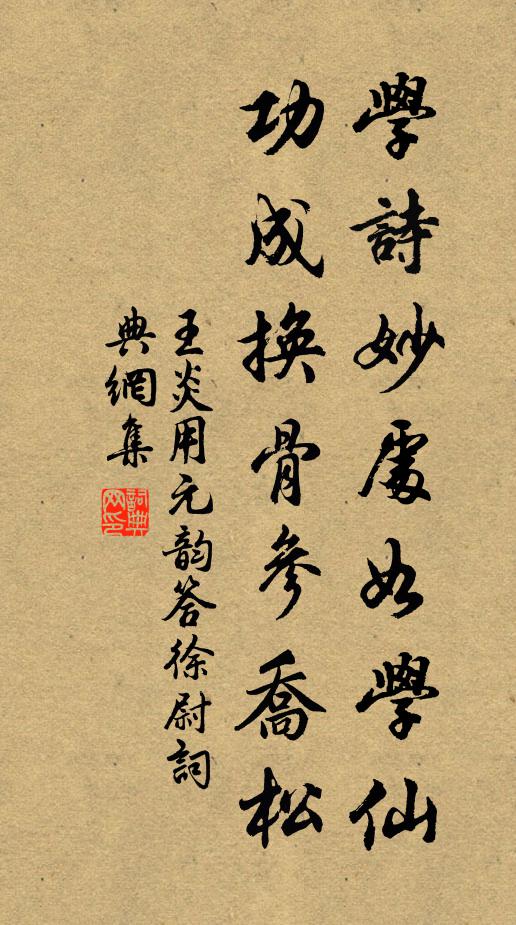 學詩妙處如學仙
功成換骨參喬松
王炎用元韵答徐尉詞
典網集
詞典
网印